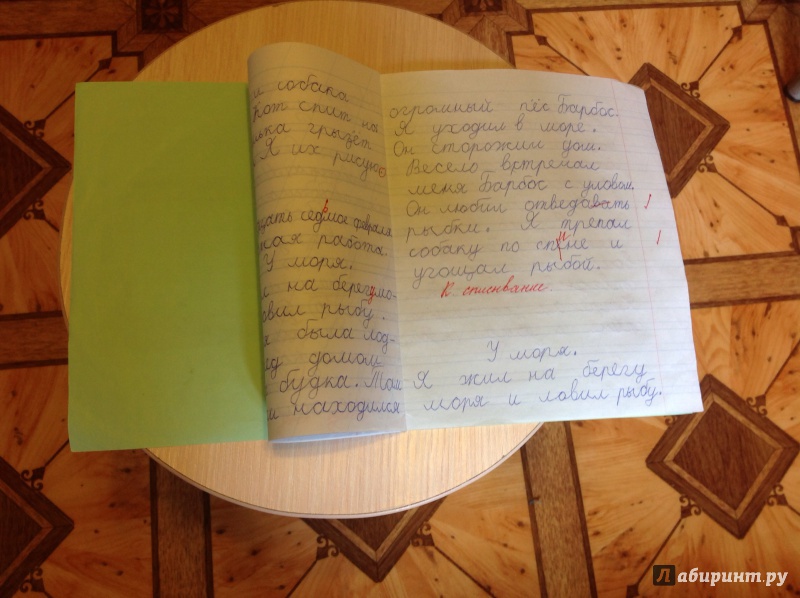 и собака
Кот спит на
лька грызёт
Я их рисую
дцать седьмое февраля
ная работа.
У моря.
л на берегу мо-
овил рыбу.
была лод-
ед домом
будка. Там
и находился
огромный пёс Барбос.
Я уходил в море.
Он сторожил дом.
Весело встречал
меня Барбос с уловом.
Он любил отведавать 1
рыбки. Я трепал
собаку по спине и 1
угощал рыбой.
К списывание.
У моря.
Я жил на берегу
моря и ловил рыбу.
Лабиринт.ру